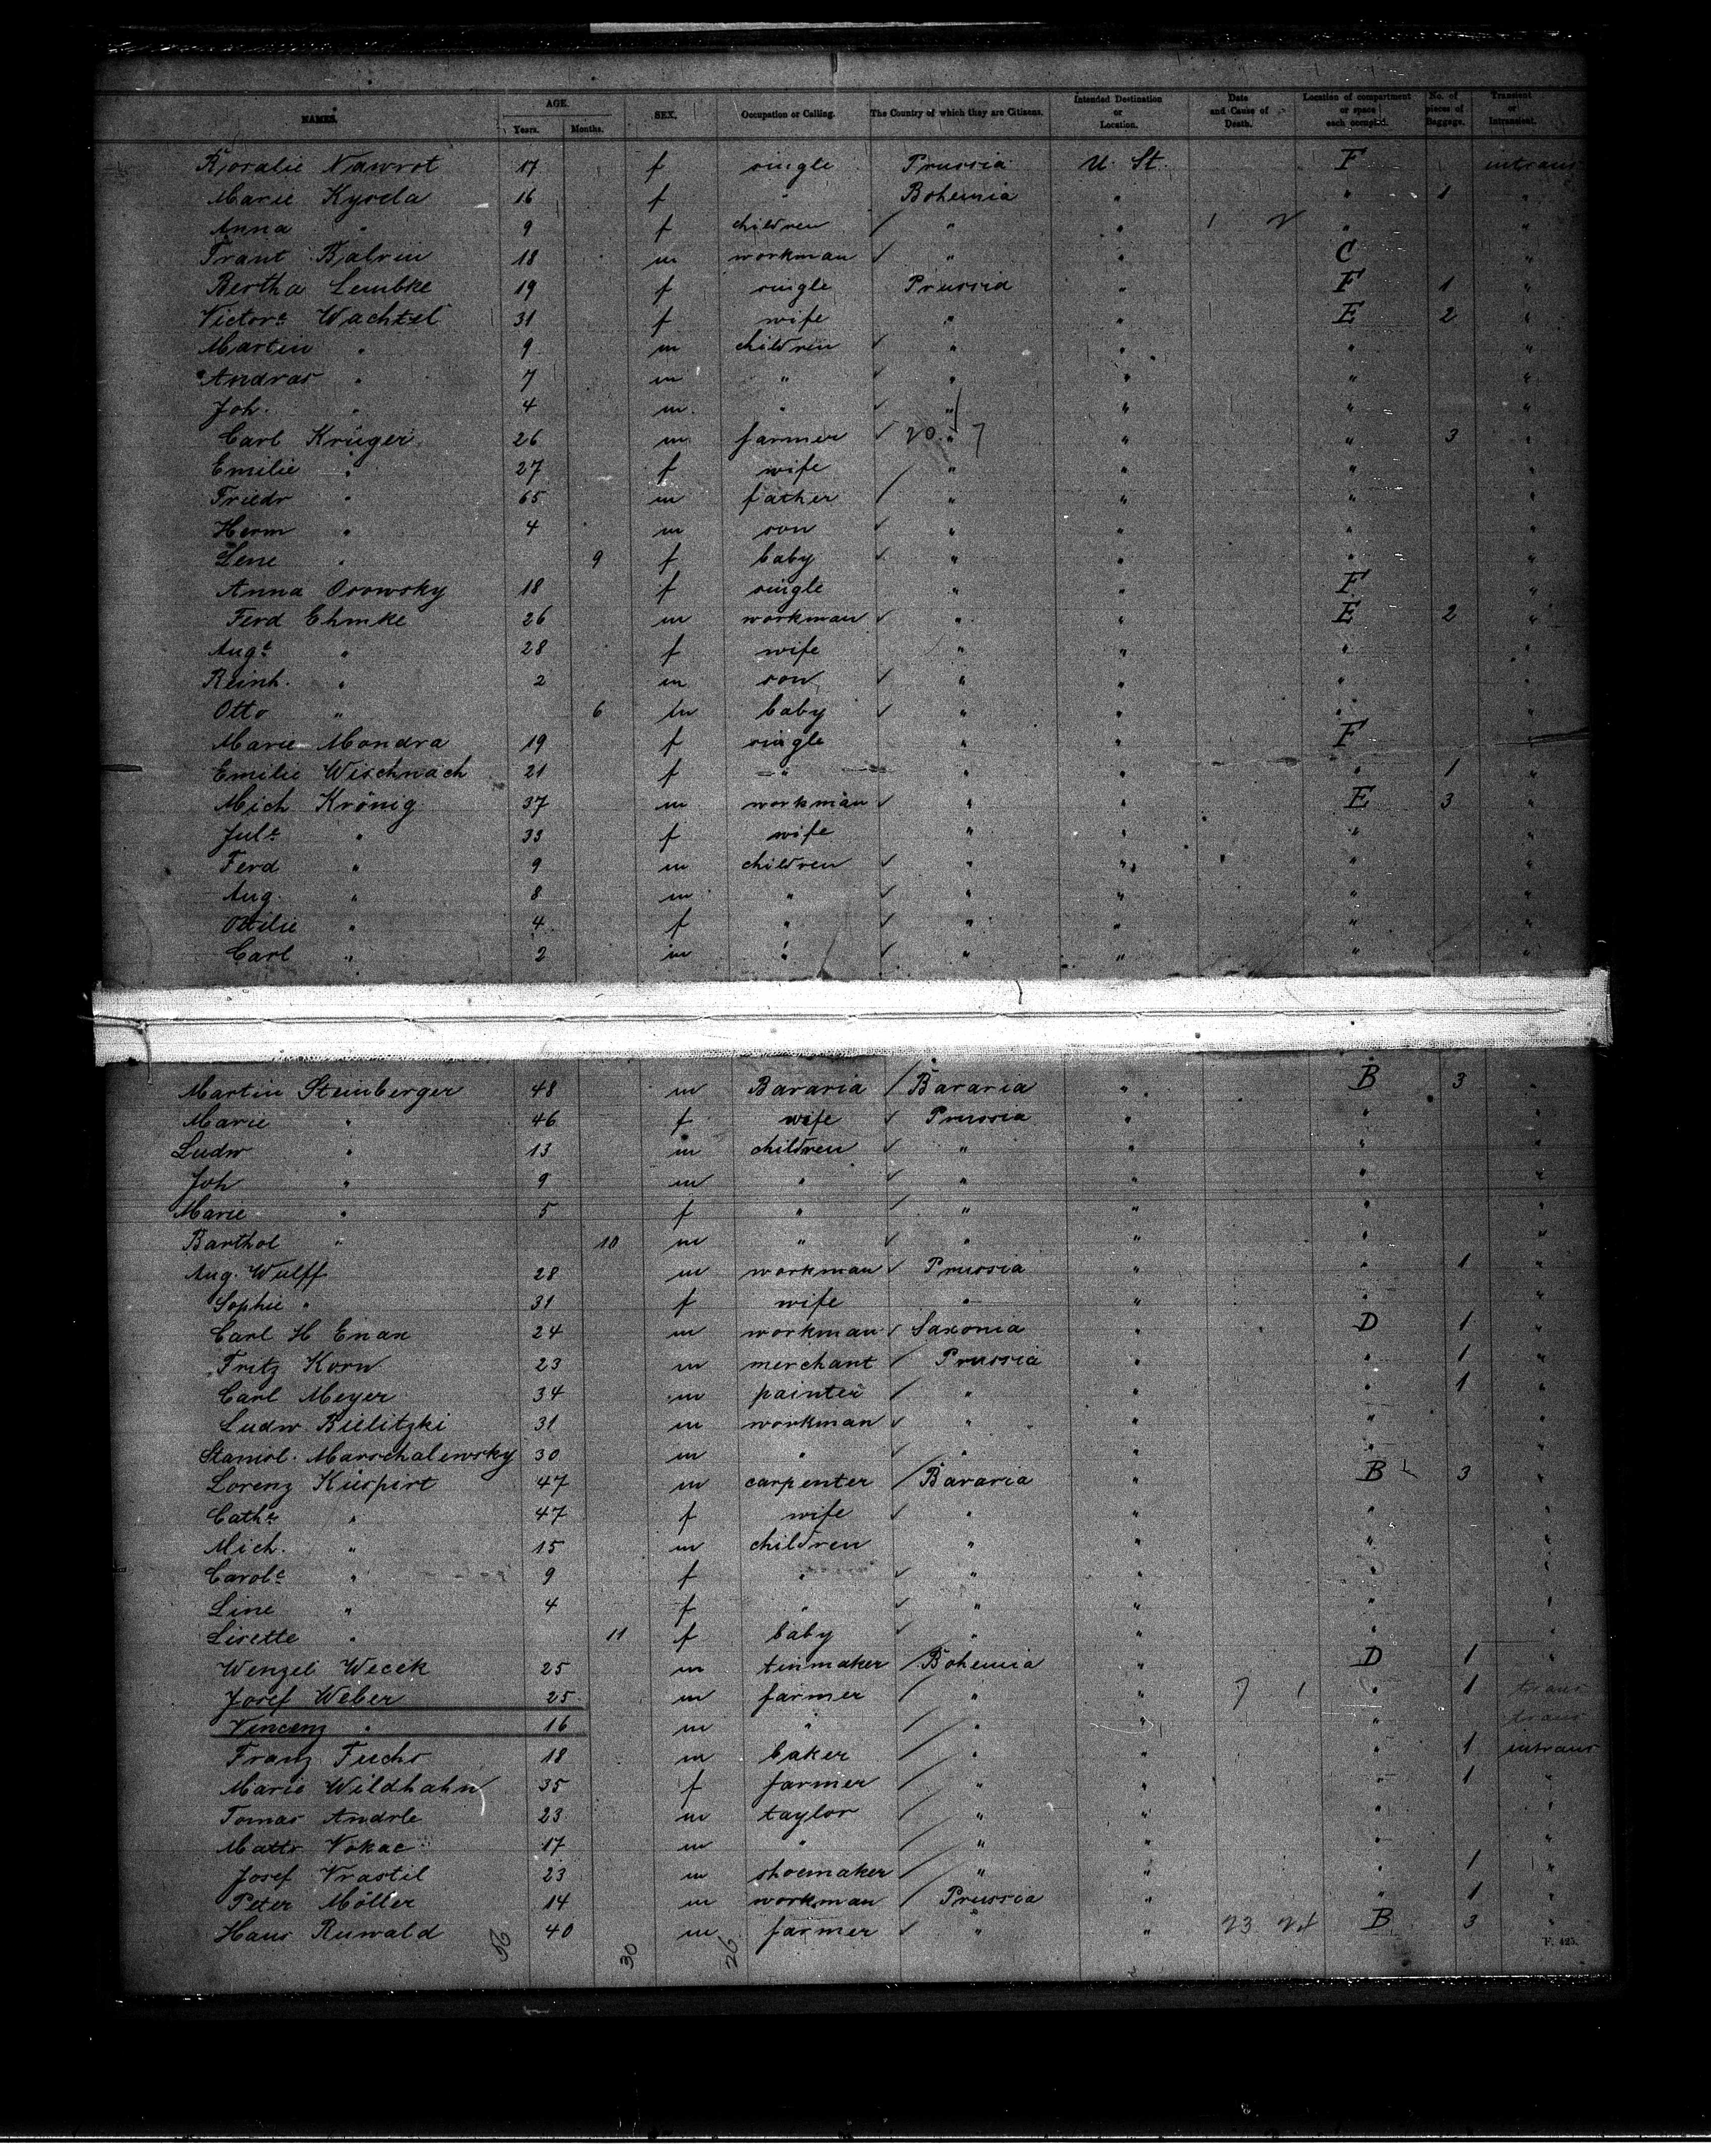 NAMES. AGE. Years. Months. SEX. Occupation or Calling. The Country of which they are Citizens. Intended Destination or Location. Date and Cause of Death. Location of compartment or space each occupied. No. of pieces of Baggage. Transient or Intransient.
Rosalie Nawrot 17 f single Prussia U. St. F intrans
Marie Kysela 16 f " Bohemia " " 1 "
Anna " 9 f children " " " "
18 m workman " " C "
Bertha Lembke 19 f single Prussia " F 1 "
Victore Wachtel 31 f wife " " E 2 "
Martin " 9 m children " " " "
Andras " 7 m " " " " "
Joh. " 4 m " " " " "
Carl Krüger 26 m farmer " " " 3 "
Emilie " 27 f wife " " " "
Friedr " 65 m father " " " "
Herm " 4 m son " " " "
Lene " 9 f baby " " " "
Anna Osowsky 18 f single " " F "
Ferd Ehmke 26 m workman " " E 2 "
Auge " 28 f wife " " " "
Reinh. " 2 m son " " " "
Otto " 6 m baby " " " "
Marie Mondra 19 f single " " F "
Emilie Wischnach 21 f " " " " 1 "
Mich Krönig 37 m workman " " E 3 "
Jule " 33 f wife " " " "
Ferd " 9 m children " " " "
Aug. " 8 m " " " " "
Ottilie " 4 f " " " " "
Carl " 2 m " " " "
Martin Steinberger 48 m Bavaria Bavaria " B 3 "
Marie " 46 f wife Prussia " " "
Ludw " 13 m children " " " "
Joh " 9 m " " " " "
Marie " 5 f " " " " "
Barthol " 10 m " " " " "
Aug. Wulff 28 m workman Prussia " " 1 "
Sophie " 31 f wife " " " "
Carl H Enax 24 m workman Saxonia " D 1 "
Fritz Korn 23 m merchant Prussia " " 1 "
Carl Meyer 34 m painter " " " 1 "
Ludw Bielitzki 31 m workman " " " "
Stanisl. Marschalewsky 30 m " " " " "
Lorenz Küspert 47 m carpenter Bavaria " B 3 "
Cathe " 47 f wife " " " "
Mich. " 15 m children " " " "
Carole " 9 f " " " " "
Line " 4 f " " " " "
Lisette " 11 f baby " " " "
Wenzel Wecek 25 m tinmaker Bohemia " D 1 "
Josef Weber 25 m farmer " " 7 1 " 1 trans
Vincenz " 16 m " " " " trans
Franz Fuchs 18 m baker " " " 1 intrans
Marie Wildhahn 35 f farmer " " " 1 "
Tomas Andrle 23 m taylor " " " "
Matts Vokac 17 m " " " " "
Josef Vrastil 23 m shoemaker " " " 1 "
Peter Möller 14 m workman Prussia " " 1 "
Hans Ruwald 40 m farmer " " 23 24 B 3 "
56 30 26
F. 425.